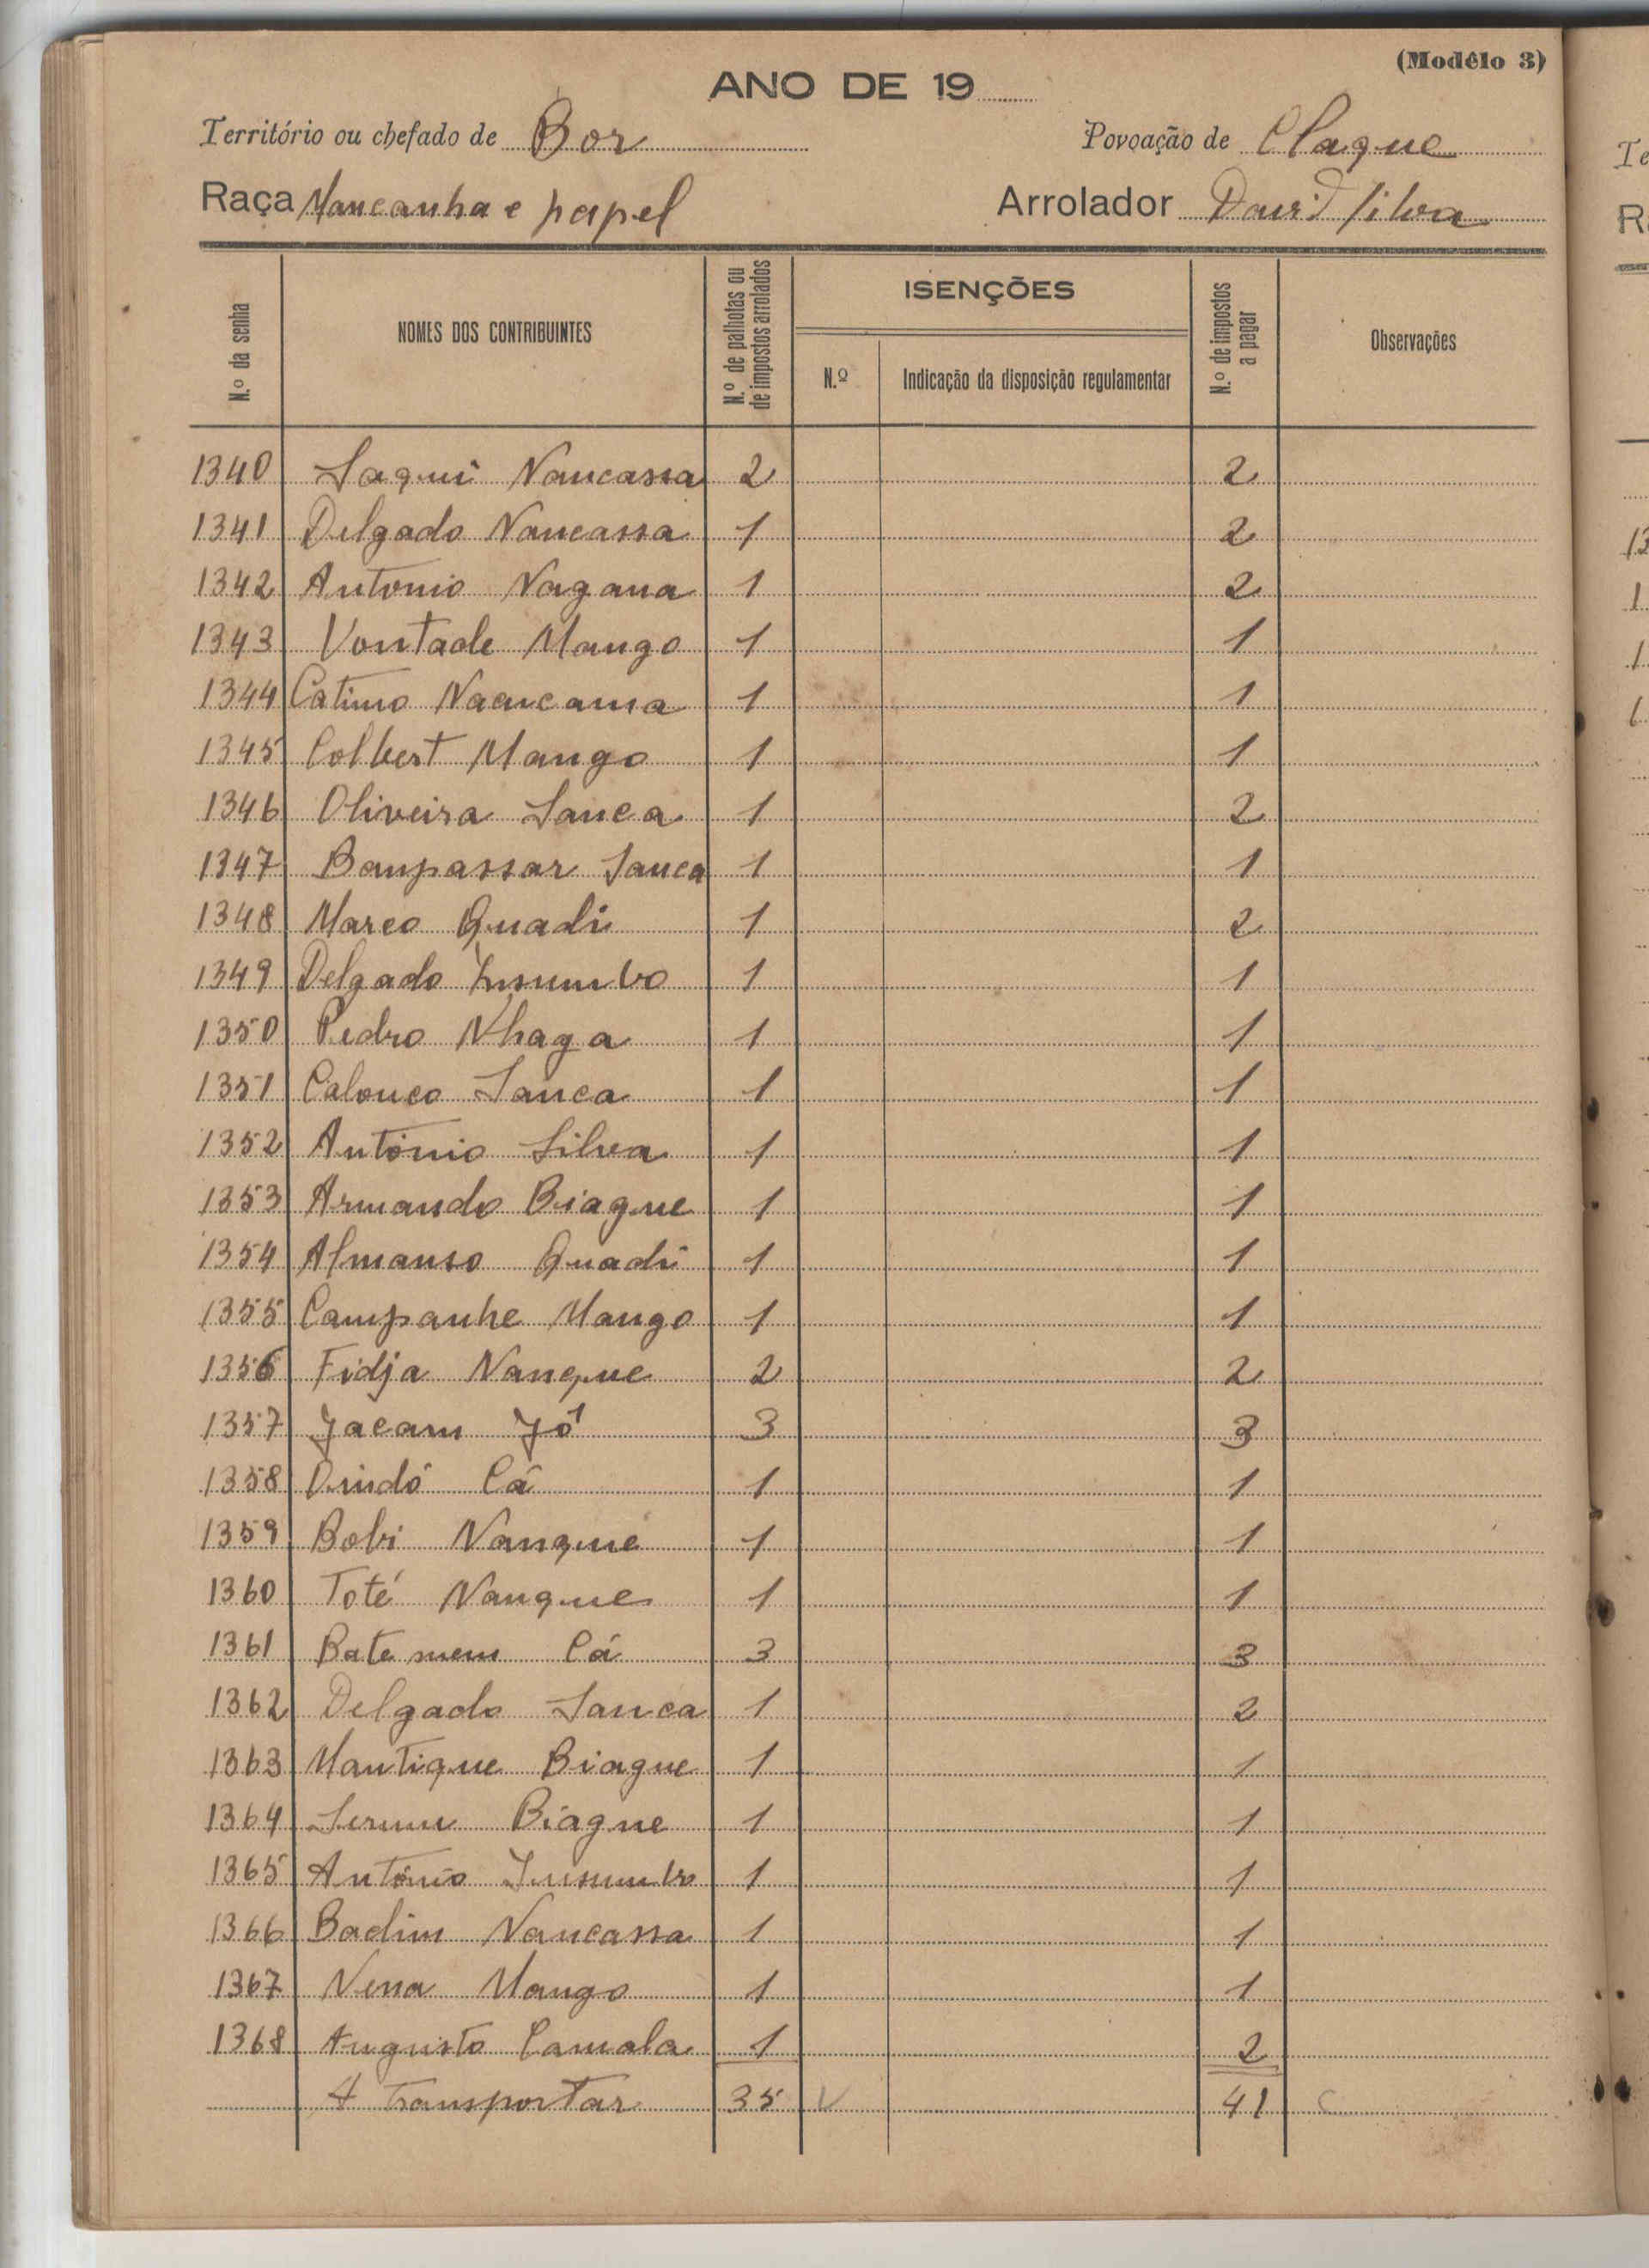 (Modêlo 3)
ANO DE 19
Território ou chefado de Bor Povoação de Claque
Raça Mancanha e papel Arrolador David Silva
N.º da senha NOMES DOS CONTRIBUINTES N.º de palhotas ou de impostos arrolados ISENÇÕES N.º Indicação da disposição regulamentar N.º de impostos a pagar Observações
1340 Saqui Nancassa 2 2
1341 Delgado Nancassa 1 2
1342 Antonio Nagana 1 2
1343 Vontade Mango 1 1
1344 Catimo 1 1
1345 Colbert Mango 1 1
1346 Oliveira Sanca 1 2
1347 Bompassar Sanca 1 1
1348 Marco Quadi 1 2
1349 Delgado Insumbo 1 1
1350 Pedro Nhaga 1 1
1351 Calonco Sanca 1 1
1352 António Silva 1 1
1353 Armando Biague 1 1
1354 Almanso Quadi 1 1
1355 Campanhe Mango 1 1
1356 Fidja Nanque 2 2
1357 Jacam Jó 3 3
1358 Dindó Cá 1 1
1359 Bobi Nanque 1 1
1360 Toté Nanque 1 1
1361 Bate mem Cá 3 3
1362 Delgado Sanca 1 2
1363 Mantique Biague 1 1
1364 Biague 1 1
1365 António Insumbo 1 1
1366 Badim Nancassa 1 1
1367 Nena Mango 1 1
1368 Augusto Camala 1 2
A transportar 35 41